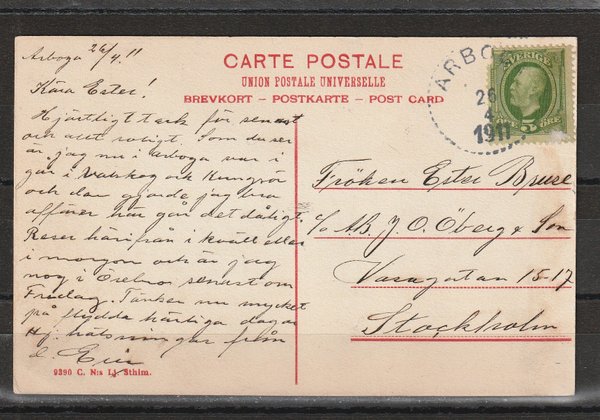 CARTE POSTALE
UNION POSTALE UNIVERSELLE
BREVKORT – POSTKARTE – POST CARD
ARBOGA
26
4
1911
SVERIGE
5 ÖRE
Arboga 26/4 11
Kära Ester!
Hjärtligt tack för senast
och allt roligt. Som du ser
är jag nu i Arboga var i
går i och Kungsör
och där gjorde jag bra
affärer här går det dåligt.
Reser härifrån i kväll eller
i morgon och är jag
nog i Örebro senast om
Fredag. Tänker nu mycket
på flydda härliga dagar
Hj. hälsningar från
d.
Fröken Ester Bruse
c/o AB. J. O. Öberg & Son
Vasagatan 15-17
Stockholm
9390 C. N:s Lj. Sthlm.